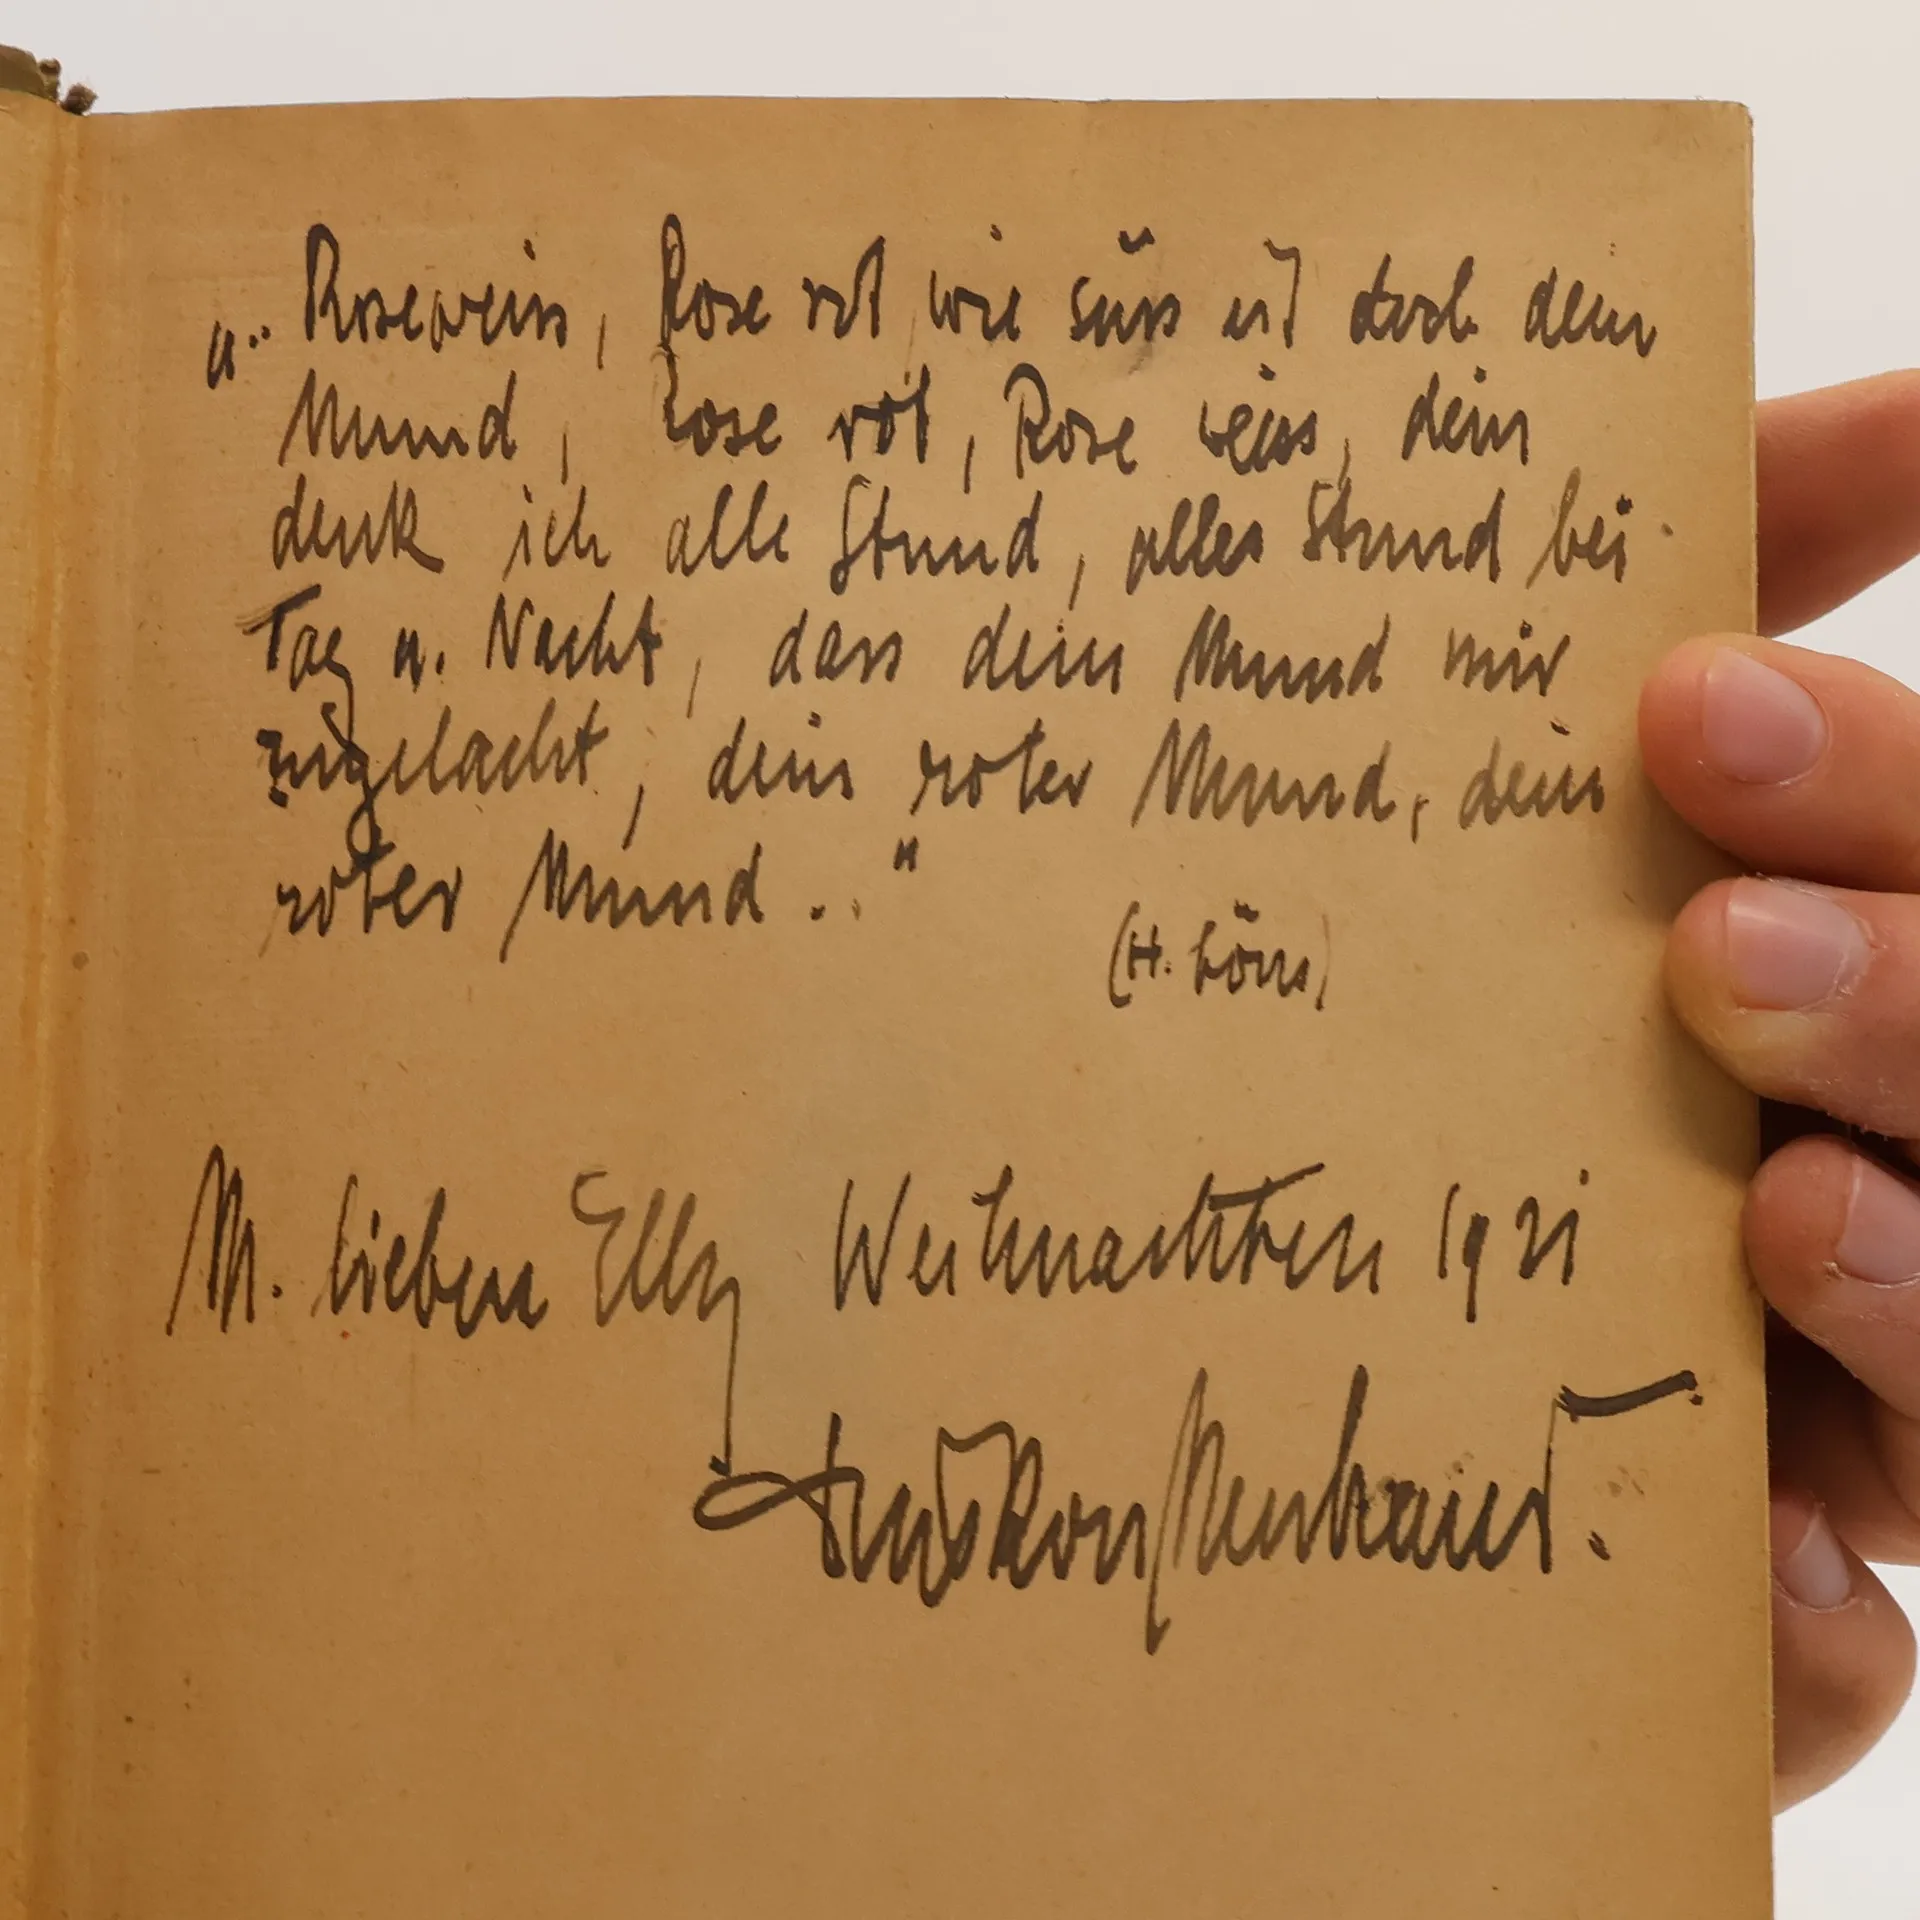 „Roseweiss, Rose rot wie süss ist doch dein
Mund, Rose rot, Rose weiss, dein
denk ich alle Stund, alle Stund bei
Tag u. Nacht, dass dein Mund mir
zugelacht, dein roter Mund, dein
roter Mund .."
(H. Löns)
M. lieben Elly Weihnachten 1921